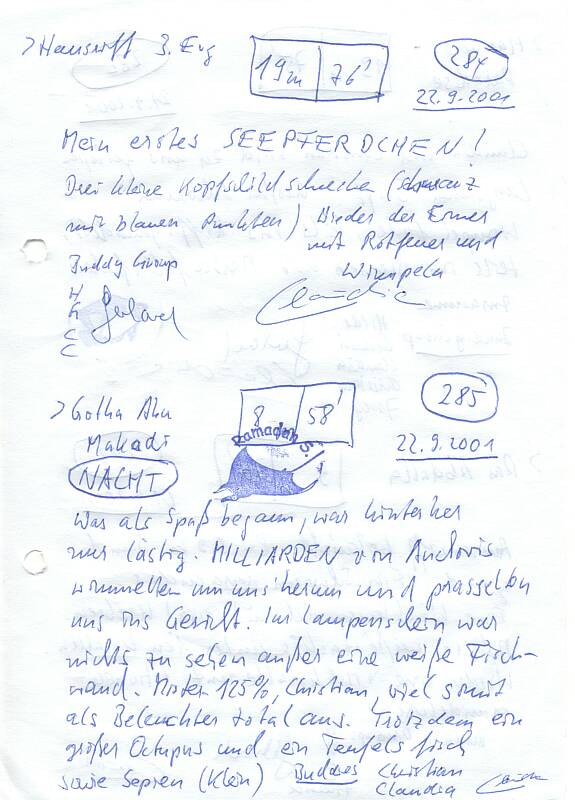 > Hausriff 3. Erg
19m 76'
284
22.9.2001
Mein erstes SEEPFERDCHEN!
Drei kleine Kopfschildschnecken (schwarz
mit blauen Punkten). Wieder der Ermes
mit Rotfeuer und
Wimpeln
Buddy Group
H
K
E
C
Claudia
> Gotha Abu
Makadi
NACHT
8 58'
285
22.9.2001
Ramadan S.
Was als Spaß begann, war hinterher
nur lästig. MILLIARDEN von Anchovis
wimmelten um uns herum und prasselten
uns ins Gesicht. Im Lampenschein war
nichts zu sehen außer eine weiße Fisch-
wand. Motor 125%, Christian, viel somit
als Beleuchter total aus. Trotzdem ein
großer Octupus und ein Teufelsfisch
sowie Sepien (Klein)
Buddies Christian
Claudia